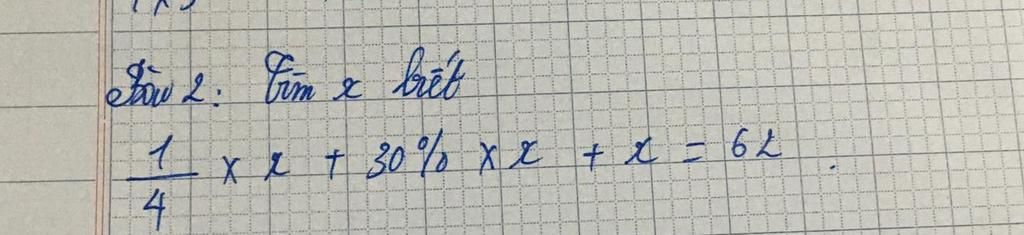 Bài 2: Tìm x biết
1/4 × x + 30% × x + x = 62.